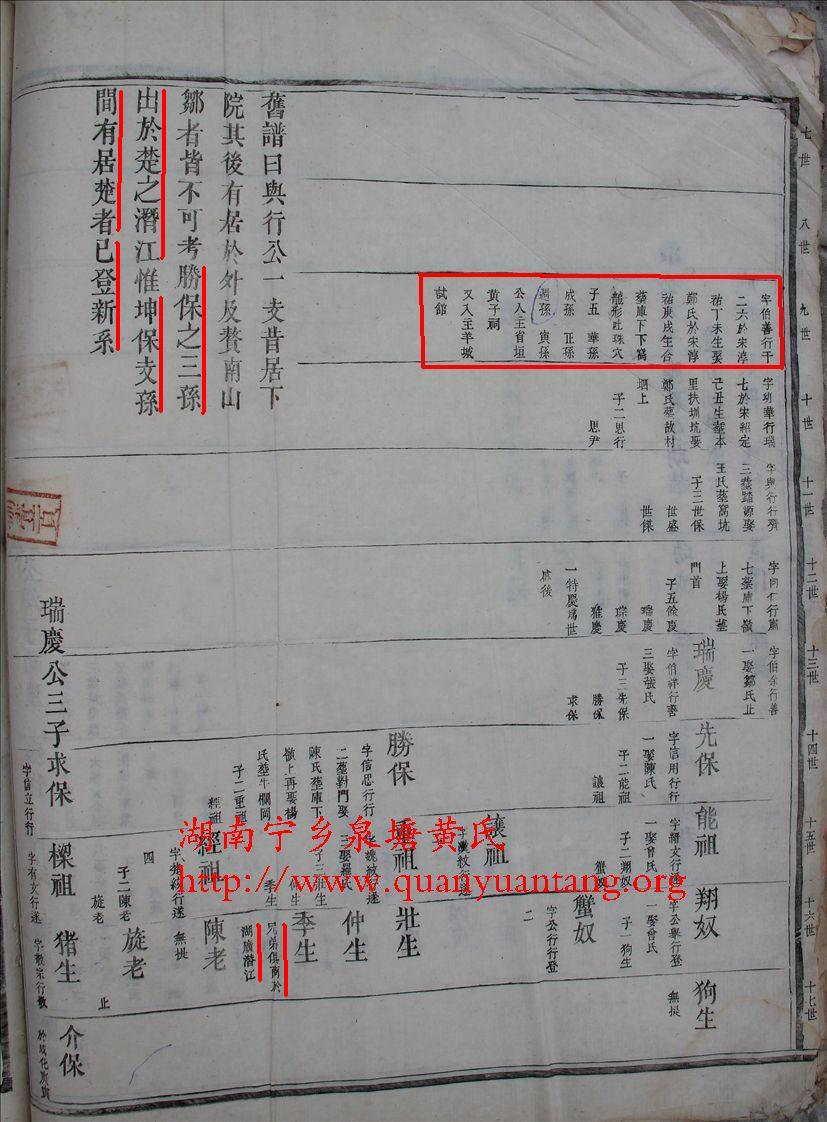 七世
八世
九世
十世
十一世
十二世
十三世
十四世
十五世
十六世
十七世
字伯善行千
二六於宋淳
祐丁未生娶
鄭氏於宋淳
祐庚戌生合
塟庫下下窩
龍形吐珠穴
子五 華孫
成孫 正孫
潤孫 寅孫
公入主省垣
黄子祠
又入主羊城
試館
字幼華行瑞
七於宋紹定
己丑生塟本
里扶圳坑娶
鄭氏塟故村
堨上
子二思行
思尹
字與行行齊
三塟踏源娶
王氏塟窩坑
子三世保
世盛
世傑
字向仁行肅
七塟庫下嶺
上娶楊氏塟
門首
子五餘慶
瑞慶
琮慶
雅慶
一特慶爲世
傑後
字伯余行善
一娶鄒氏止
瑞慶
字伯祥行善
三娶張氏
子三先保
勝保
求保
先保
字信用行行
一娶陳氏
子二能祖
讓祖
勝保
字信忠行行
二塟對門娶
陳氏塟庫下
嶺上再娶楊
氏塟牛欄岡
子二重祖
經祖
能祖
字縉文行遂
一娶曾氏
子二翔奴
蟹奴
讓祖
重祖
三娶羅氏
仲生
季生
經祖
四
子二陳老
旋老
翔奴
字公舉行登
一娶曾氏
子一狗生
蟹奴
字公行行登
二
壯生
仲生
季生
兄弟俱商於
湖廣潛江
陳老
無提
旋老
止
狗生
無提
舊譜曰與行公一支昔居下
院其後有居於外及贅南山
鄒者皆不可考勝保之三孫
出於楚之潛江惟坤保支孫
間有居楚者已登新系
瑞慶公三子求保
字信立行行
樑祖
字有文行遂
猪生
字敦宗行敬
介保
湖南宁乡泉塘黄氏
http://www.quanyuantang.org